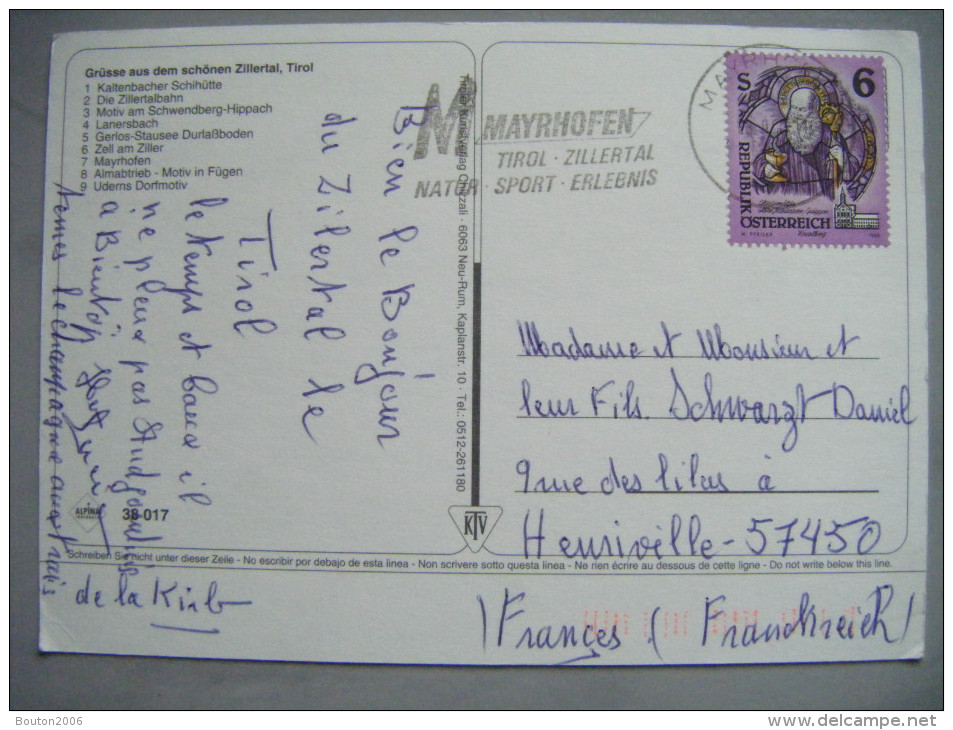 Grüsse aus dem schönen Zillertal, Tirol
1 Kaltenbacher Schihütte
2 Die Zillertalbahn
3 Motiv am Schwendberg-Hippach
4 Lanersbach
5 Gerlos-Stausee Durlaßboden
6 Zell am Ziller
7 Mayrhofen
8 Almabtrieb - Motiv in Fügen
9 Uderns Dorfmotiv
Bien le Bonjour
du Zilertal le
Tirol
le temps et il
ne pleut pas
a Bientôt
de la Kirb
ALPINA
38 017
Tiroler Kunstverlag Chizzali · 6063 Neu-Rum, Kaplanstr. 10 · Tel.: 0512-261180
KTV
M MAYRHOFEN
TIROL · ZILLERTAL
NATUR · SPORT · ERLEBNIS
MAYRH
S 6
REPUBLIK
ÖSTERREICH
Madame et Monsieur et
leur Fils. Schwarzt Daniel
9 rue des lilas à
Henriville - 57450
Schreiben Sie nicht unter dieser Zeile - No escribir por debajo de esta linea - Non scrivere sotto questa linea - Ne rien écrire au dessous de cette ligne - Do not write below this line.
Frances (Franckreich)
Bouton2006
http://www.delcampe.net